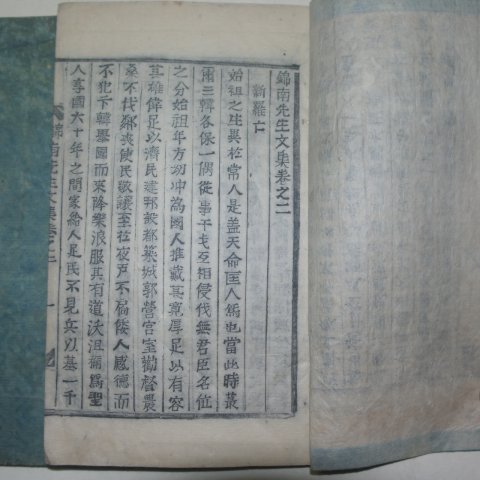 錦南先生文集卷之二
新羅
始祖之生異於常人是盖天命匡人焉也當此時蕞
爾三韓各保一偶從事干戈互相侵伐無君臣名位
之分始祖年方幼冲為國人推戴其寬厚足以有容
其雄偉足以濟民建邦設都築城郭營官室勸督農
桑不伐鄰喪使民敬讓至於夜戶不扄倭人感德而
不犯卞韓擧國而來降樂浪服其有道沃沮稱爲聖
人享國六十年之間家給人足民不見兵以基一千
錦南先生文集卷之二 一